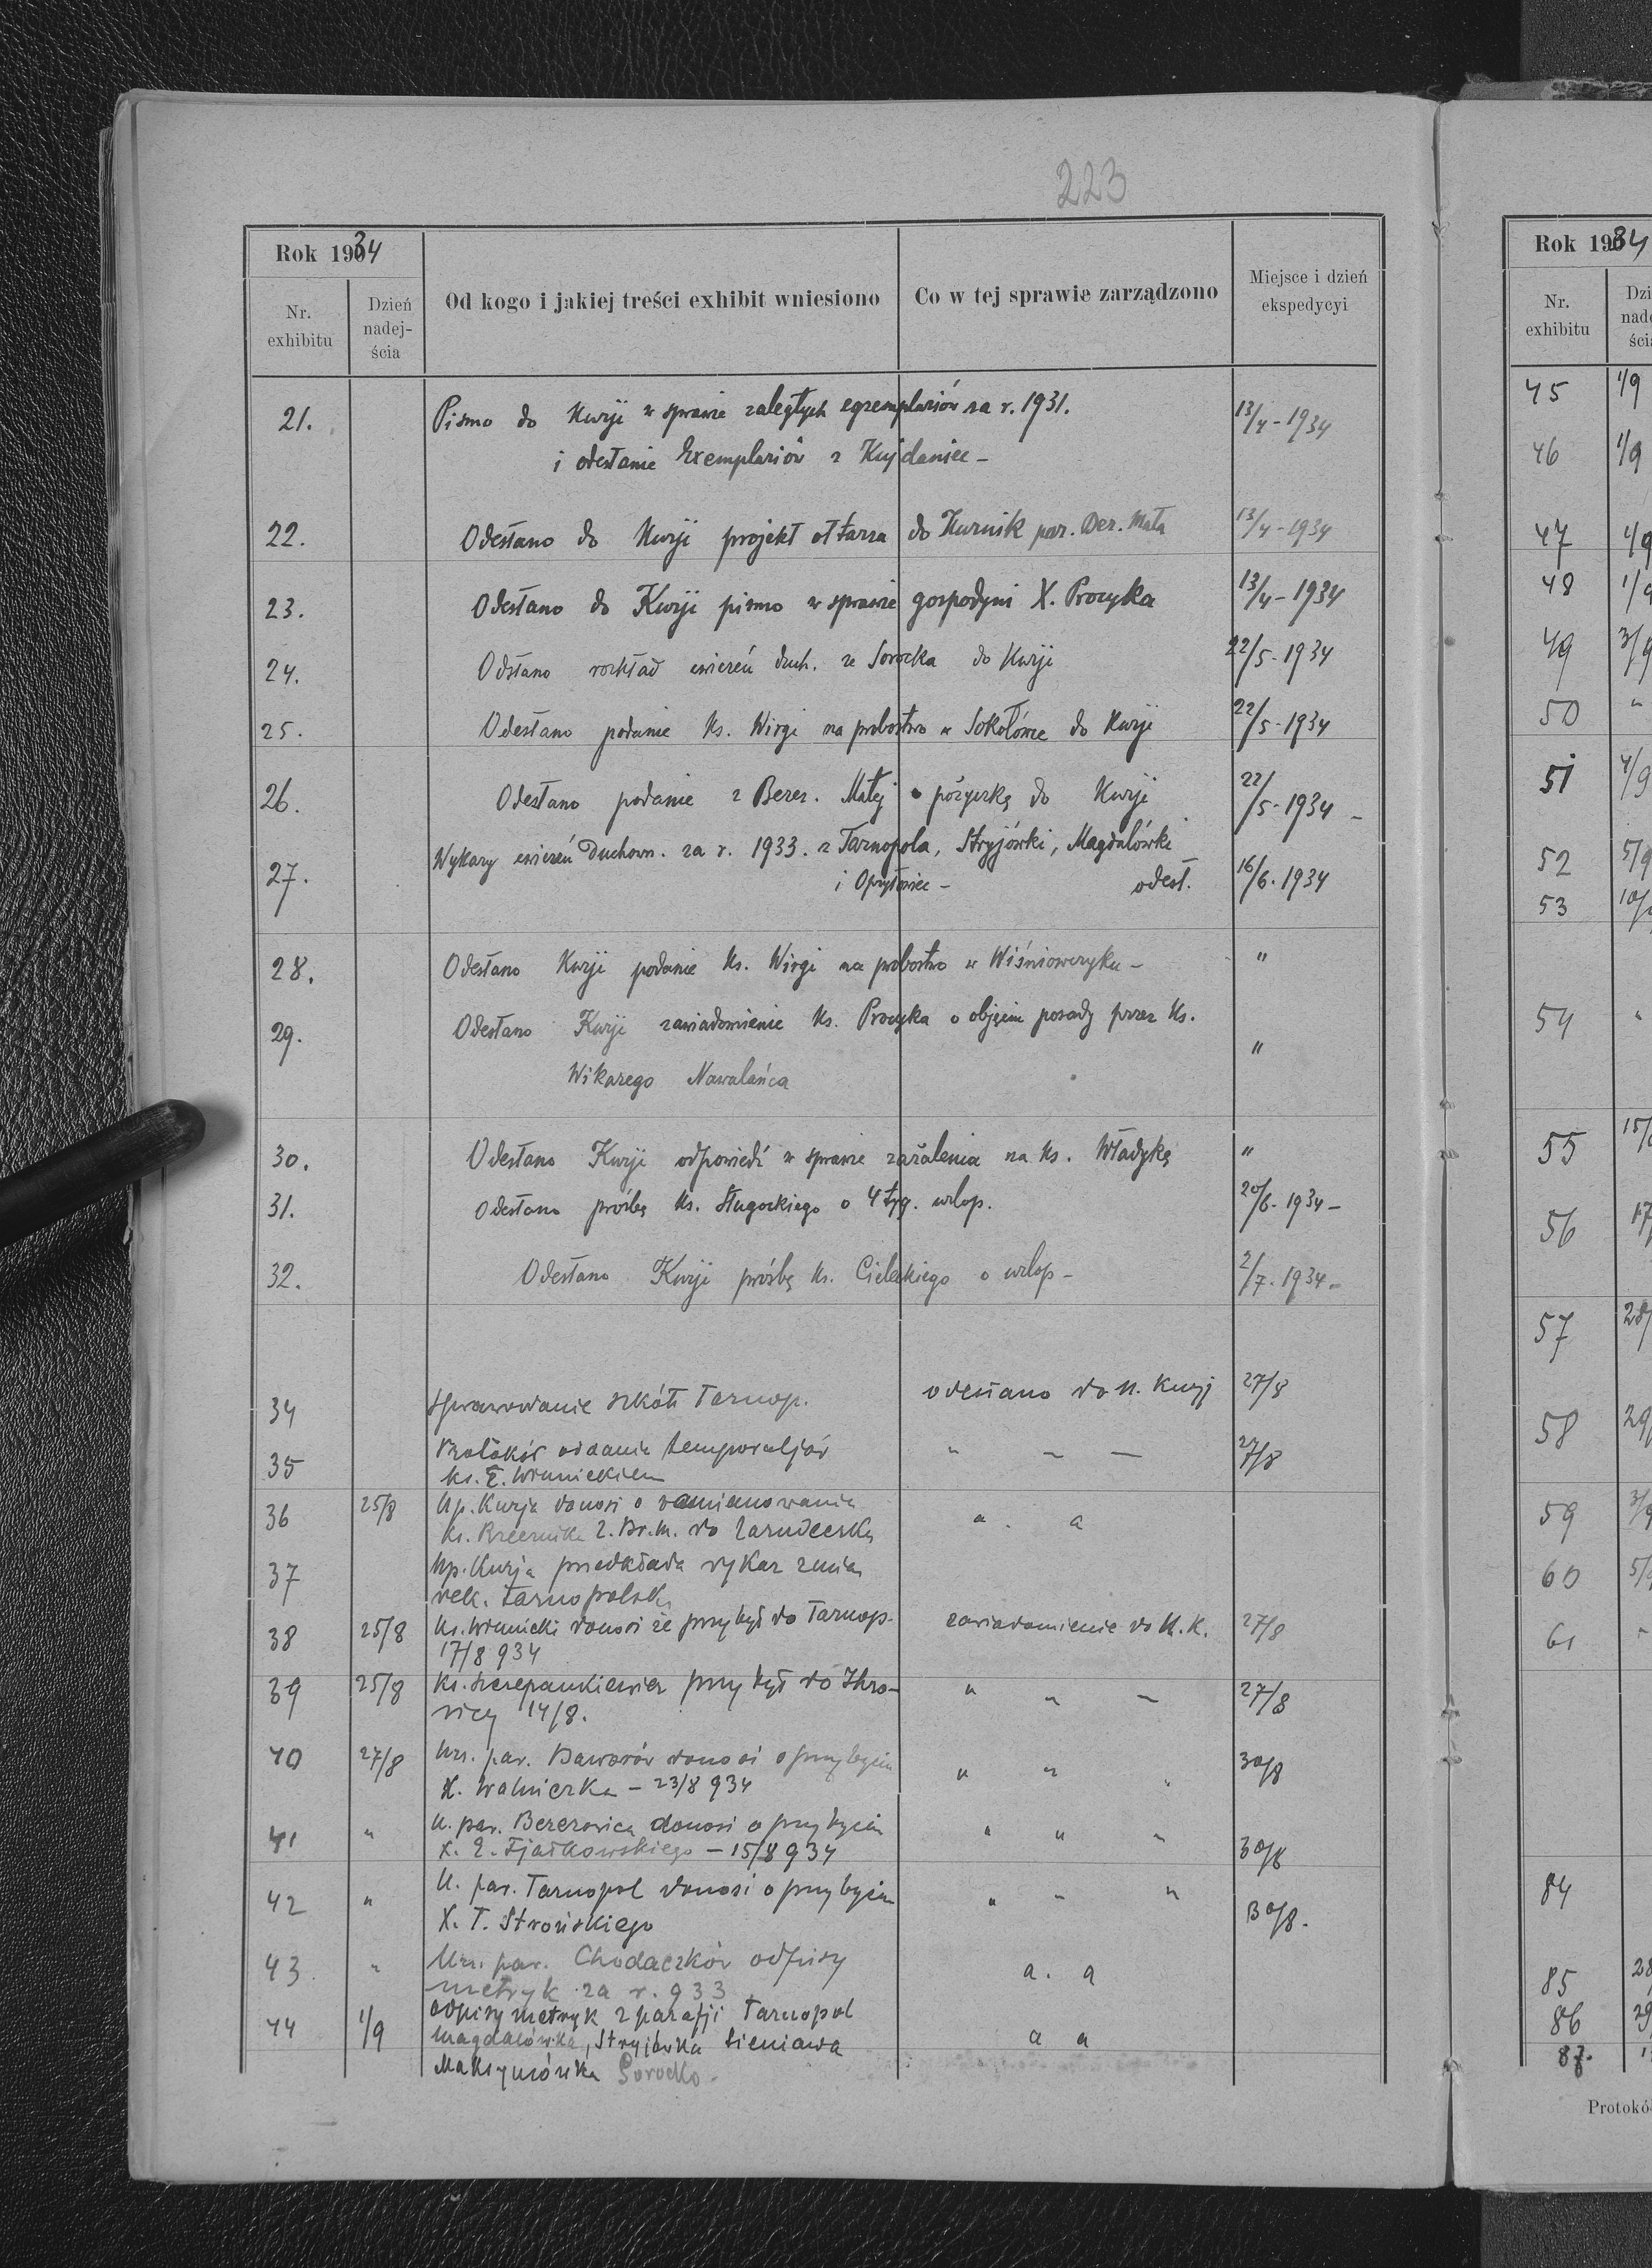 223
Rok 1934
Nr. exhibitu
Dzień nadej-ścia
Od kogo i jakiej treści exhibit wniesiono
Co w tej sprawie zarządzono
Miejsce i dzień ekspedycyi
21. Pismo do Kurji w sprawie zaległych egzemplariów za r. 1931. 13/4-1934
i odesłanie Exemplariów z Kujdaniec -
22. Odesłano do Kurji projekt ołtarza do Kurnik par. Ber. Mała 13/4-1934
23. Odesłano do Kurji pismo w sprawie gospodyni X. Procyka 13/4-1934
24. Odsłano rozkład ćwiczeń duch. ze Sorocka do Kurji 22/5-1934
25. Odesłano podanie ks. Wirgi na probostwo w Sokołówce do Kurji 22/5-1934
26. Odesłano podanie z Berez. Małej o pożyczkę do Kurji 22/5-1934 -
27. Wykazy ćwiczeń Duchown. za r. 1933. z Tarnopola, Stryjówki, Magdalówki
i Opryłowiec - odesł. 16/6.1934
28. Odesłano Kurji podanie ks. Wirgi na probostwo w Wiśniowczyku - "
29. Odesłano Kurji zawiadomienie ks. Procyka o objęciu posady przez ks.
Wikarego Nawalańca "
30. Odesłano Kurji odpowiedź w sprawie zażalenia na ks. Władykę "
31. Odesłano prośbę ks. Sługockiego o 4 tyg. urlop. 20/6-1934-
32. Odesłano Kurji prośbę ks. Cieleckiego o urlop - 2/7.1934-
34 Sprawowanie szkół Tarnop. odesłano do K. Kurji 27/8
35 Protokół oddania temporaljów " - - 27/8
ks. E. Winnickiem
36 25/8 Np. Kurja donosi o zamianowaniu
ks. z. Br. M. do Zarudeczka a. a
37 Np. Kurja przedkłada wykaz zmian
dek. tarnopolsk.
38 25/8 Ks. Winnicki donosi że przybył do Tarnop. zawiadomienie do K. K. 27/8
17/8 934
39 25/8 Ks. Szczepankiewicz przybył do Ihro- " " - 27/8
wicy 14/8.
40 27/8 Urz. par. Baworów donosi o przybyciu " " " 30/8
X. Walniczka - 23/8 934
41 " U. par. Berezowica donosi o przybyciu " " "
X. E. Fjałkowskiego - 15/8 934 30/8
42 " U. par. Tarnopol donosi o przybyciu " " "
X. T. Strońskiego 30/8.
43 " Urz. par. Chodaczków odpisy a. a
metryk za r. 933
44 1/9 odpisy metryk z parafji Tarnopol
Magdalówka, Stryjówka Sieniawa a a
Maksymówka Sorocko.
Rok 1934
Nr. exhibitu
Dzi
nade
ści
45 1/9
46 1/9
47 1/9
48 1/9
49 3/9
50 "
51 4/9
52 5/9
53 10/
54 "
55 15/
56 17
57 28/
58 29/
59 3/9
60 5/
61 "
84
85 28
86 29
87. 1
Protokó